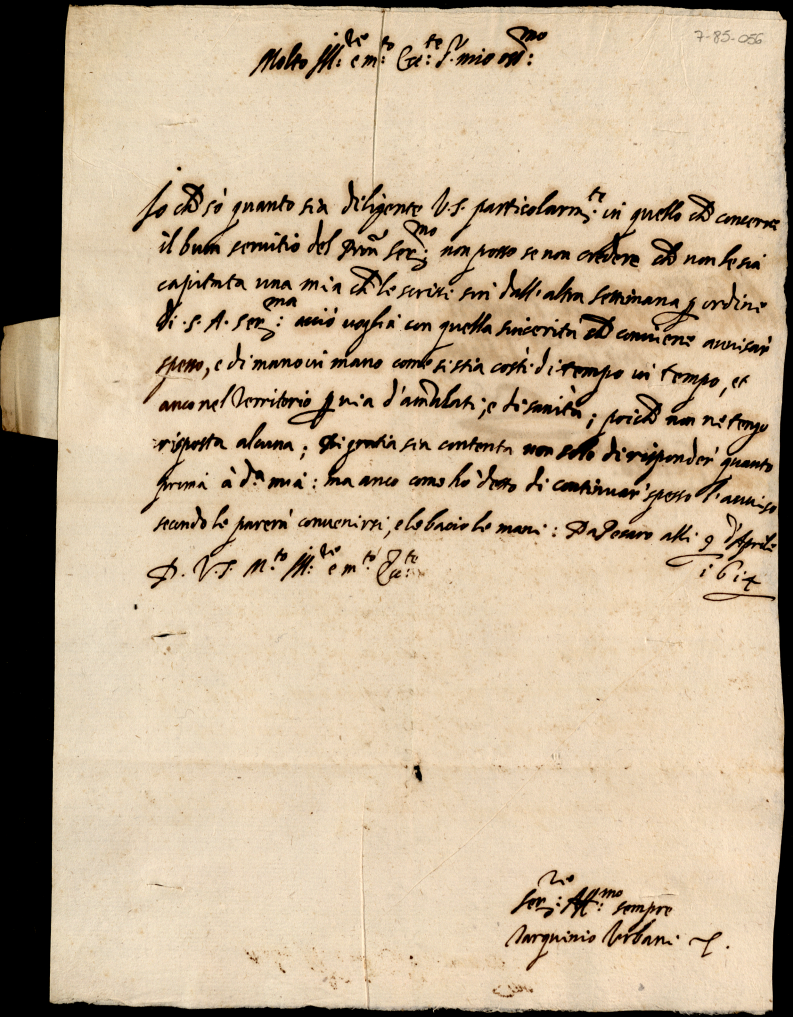 7-85-056
Molto Ill:re e m:to Ecc:te S.r mio oss:mo
Io che sò quanto sia diligente V.S. particolarm:te in quello che concerne
il buon servitio del Pron Ser:mo non posso se non credere che non le sia
capitata una mia che le scrissi sin dall'altra settimana p ordine
di S.A. Ser:ma acciò voglia con quella sincerità che conviene avvisar
spesso, e di mano in mano come si stia costì di tempo in tempo, et
anco nel Territorio p via d'amalati, e di sanità; poiche non ne tengo
risposta alcuna; Di gratia sia contenta non solo di risponder quanto
prima à d.a mia: ma anco come hò detto di continuar spesso l'avviso
secondo le parerà convenirsi, e le bacio le mani: Da Pesaro alli 9 d'Aprile
D. V.S. M.to Ill:re e m:to Ecc:te 1614
Ser:re Aff:mo sempre
Tarquinio Urbani